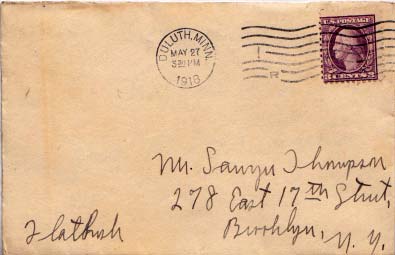 DULUTH, MINN.
MAY 27
3 30 PM
1918
U.S. POSTAGE
3 CENTS 3
Mr. Sawyer Thompson
278 East 17th Street,
Flatbush
Brooklyn,
N. Y.